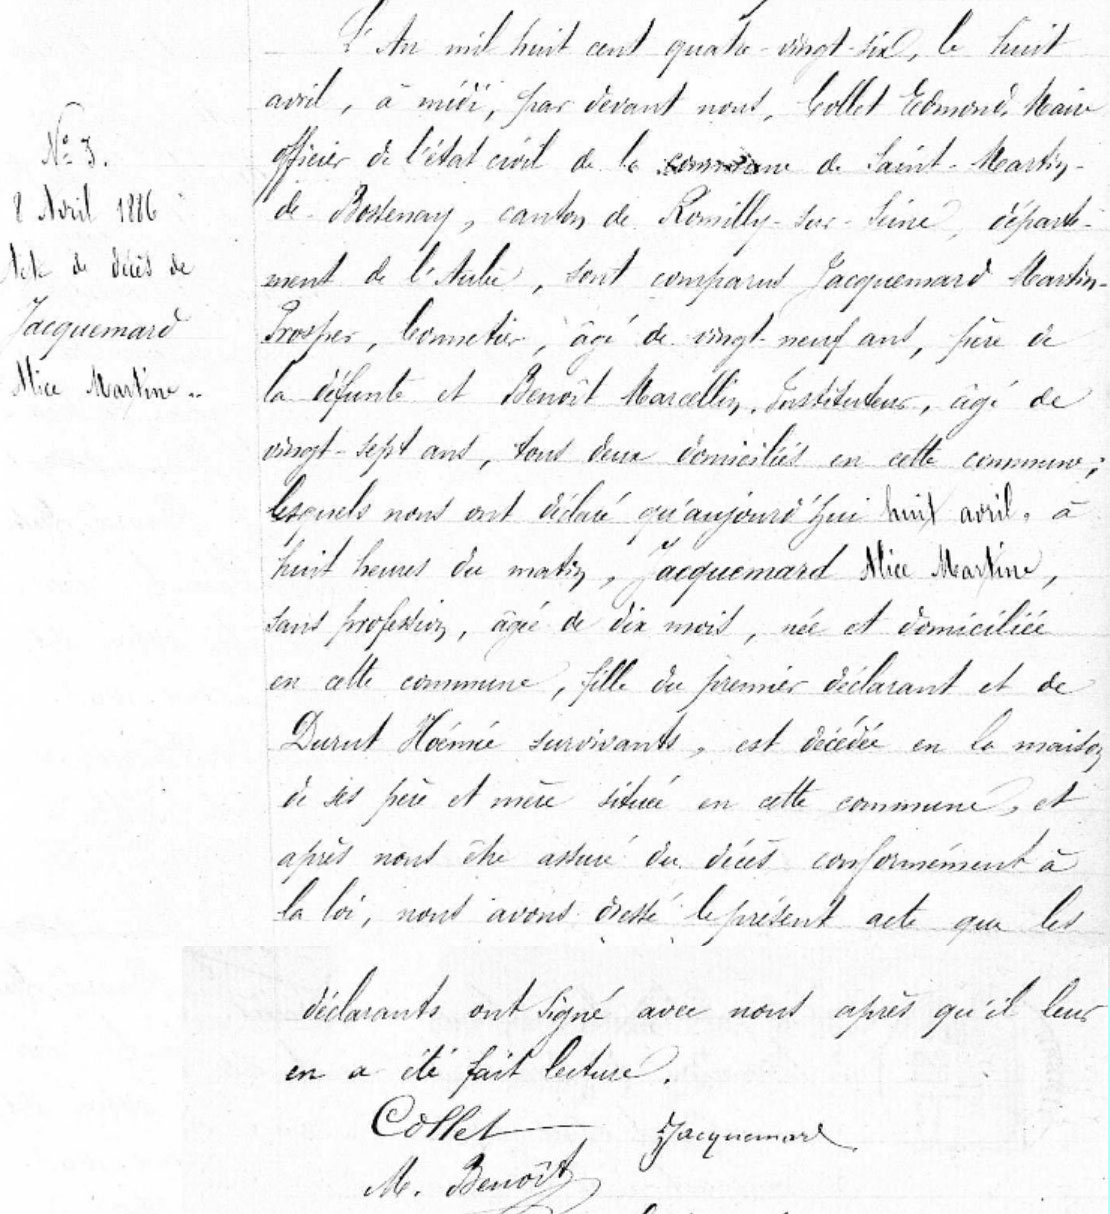 L'An mil huit cent quatre-vingt-six, le huit
avril, à midi, par devant nous, Collet Edmond, Maire
officier de l'état civil de la commune de Saint-Martin-
de-Bossenay, canton de Romilly-sur-Seine, départe-
ment de l'Aube, sont comparus Jacquemard Martin-
Prosper, bonnetier, âgé de vingt-neuf ans, père de
la défunte et Benoît Marcellin, Instituteur, âgé de
vingt-sept ans, tous deux domiciliés en cette commune;
lesquels nous ont déclaré qu'aujourd'hui huit avril, à
huit heures du matin, Jacquemard Alice Martine,
sans profession, âgée de dix mois, née et domiciliée
en cette commune, fille du premier déclarant et de
Durut Noémie survivants, est décédée en la maison
de ses père et mère située en cette commune, et
après nous être assuré du décès conformément à
la loi, nous avons dressé le présent acte que les
déclarants ont signé avec nous après qu'il leur
en a été fait lecture.
Collet Jacquemard
M. Benoît
N° 3.
8 Avril 1886
Acte de décès de
Jacquemard
Alice Martine